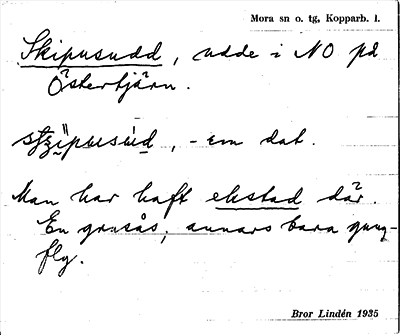 Mora sn o. tg, Kopparb. l.
Skipusudd, udde i NO på
Östertjärn.
-em dat.
Man har haft ekstad där.
En grusås, annars bara gung-
fly.
Bror Lindén 1935